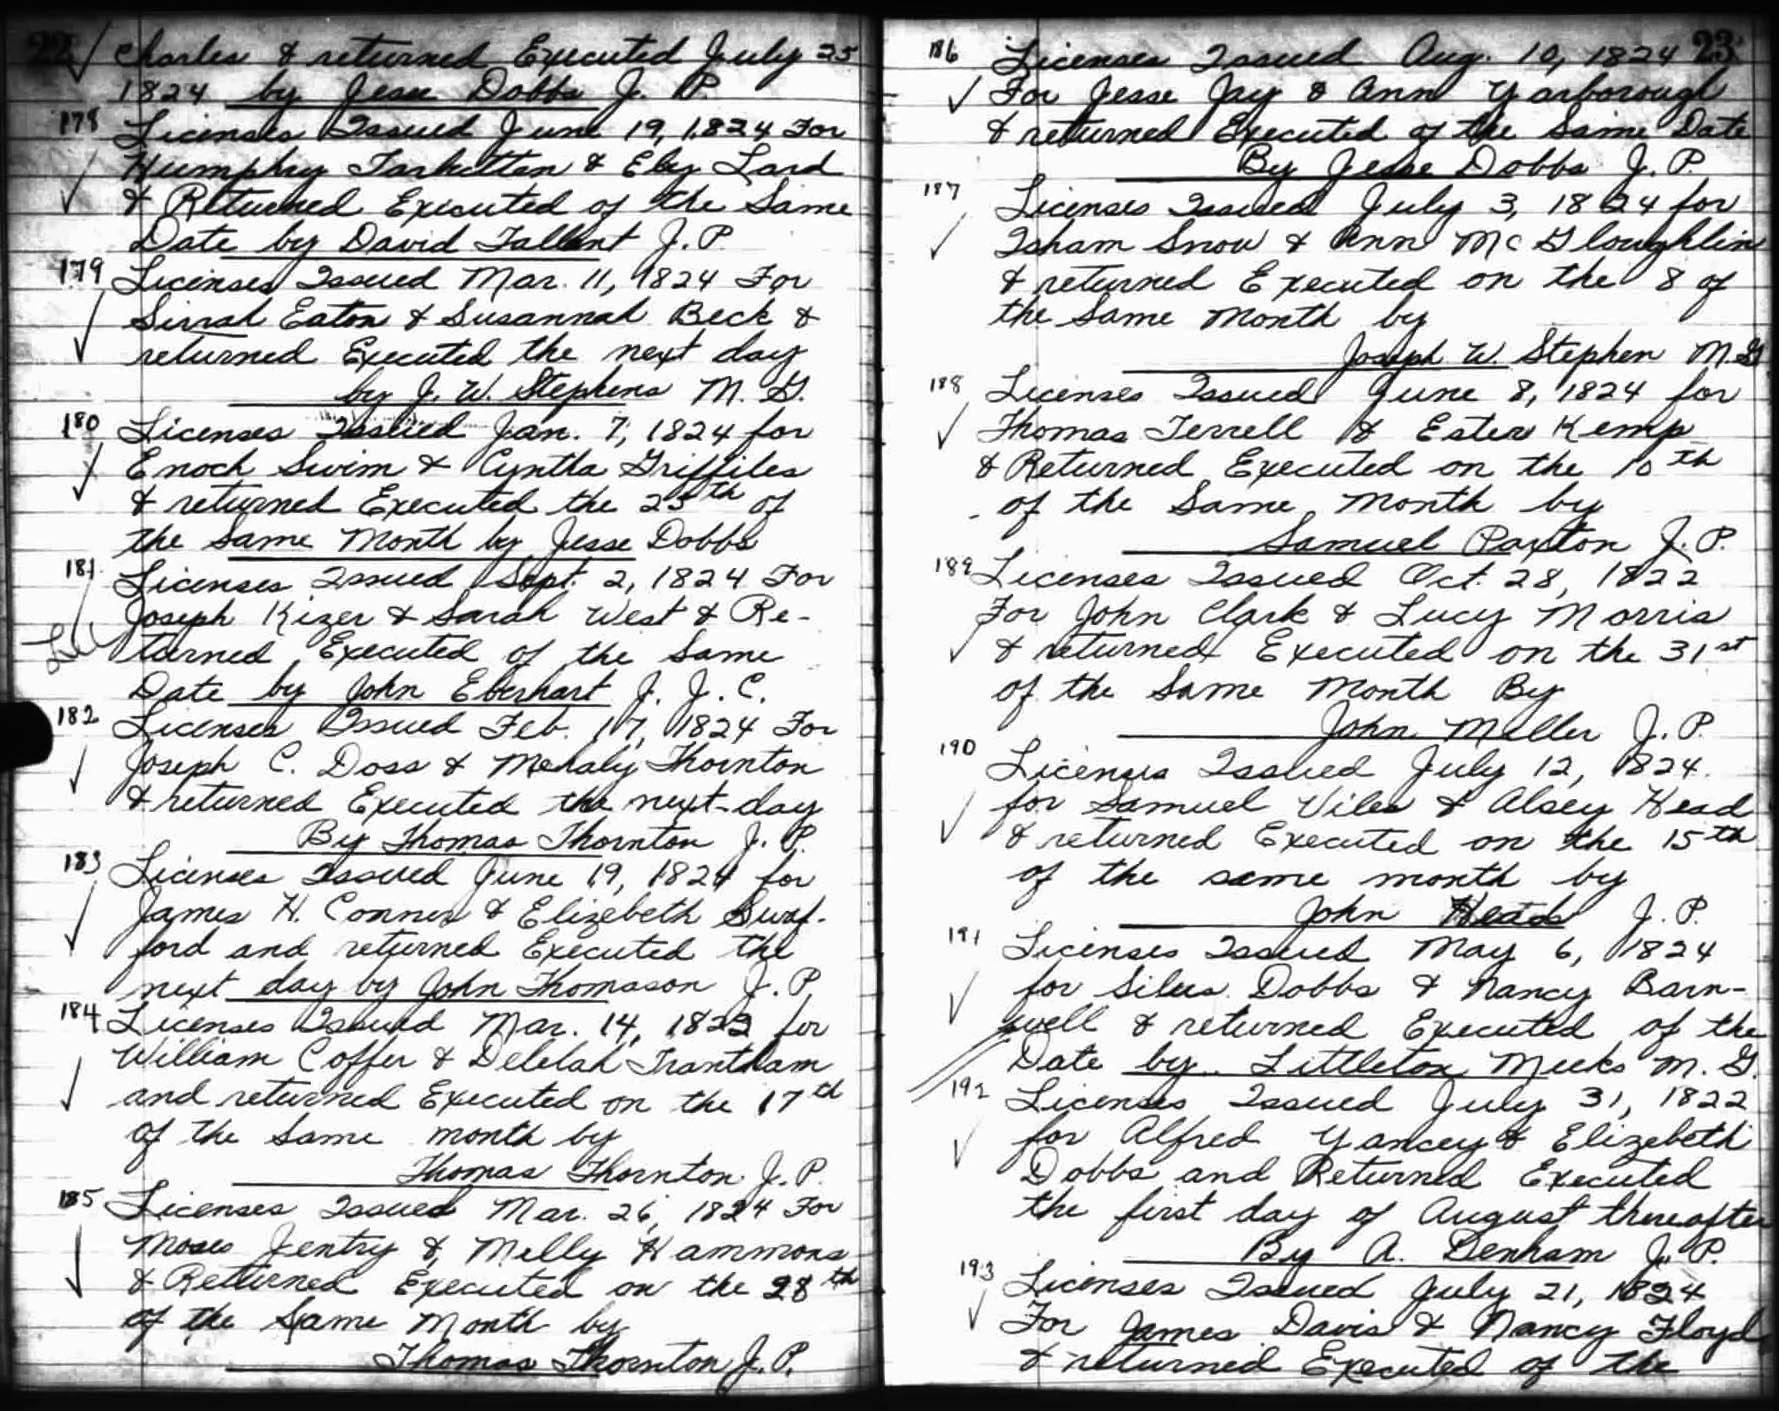 22
Charles & returned Executed July 25
1824 by Jesse Dobbs J. P.
178
Licenses Issued June 19, 1824 For
Humphry Tarkittan & Eby Lard
& Returned Executed of the Same
Date by David Tallent J. P.
179
Licenses Issued Mar. 11, 1824 For
Sirrah Eaton & Susannah Beck &
returned Executed the next day
by J. W. Stephens M. G.
180
Licenses Issued Jan. 7, 1824 for
Enoch Swim & Cyntha Griffiles
& returned Executed the 25th of
the Same Month by Jesse Dobbs
181
Licenses Issued Sept. 2, 1824 For
Joseph Kizer & Sarah West & Re-
turned Executed of the Same
Date by John Eberhart J. J. C.
182
Licenses Issued Feb. 17, 1824 For
Joseph C. Doss & Mehaly Thornton
& returned Executed the next-day
By Thomas Thornton J. P.
183
Licenses Issued June 19, 1824 for
James H. Conner & Elizebeth Swaf-
ford and returned Executed the
next day by John Thomason J. P.
184
Licenses Issued Mar. 14, 1823 for
William Coffer & Delelah Trantham
and returned Executed on the 17th
of the Same month by
Thomas Thornton J. P.
185
Licenses Issued Mar. 26, 1824 For
Moses Jentry & Melly Hammons
& Returned Executed on the 28th
of the Same Month by
Thomas Thornton J. P.
23
186
Licenses Issued Aug. 10, 1824
For Jesse Jay & Ann Yarborough
& returned Executed of the Same Date
By Jesse Dobbs J. P.
187
Licenses Issued July 3, 1824 for
Isham Snow & Ann McGloughlin
& returned Executed on the 8 of
the Same Month by
Joseph W. Stephen M. G.
188
Licenses Issued June 8, 1824 for
Thomas Terrell & Ester Kemp
& Returned Executed on the 10th
of the Same Month by
Samuel Paxton J. P.
189
Licenses Issued Oct. 28, 1822
For John Clark & Lucy Morris
& returned Executed on the 31st
of the Same Month By
John Meller J. P.
190
Licenses Issued July 12, 1824.
for Samuel Viles & Alsey Head
& returned Executed on the 15th
of the same month by
John Heads J. P.
191
Licenses Issued May 6, 1824
for Silus Dobbs & Nancy Barn-
well & returned Executed of the
Date by Littleton Meeks M. G.
192
Licenses Issued July 31, 1822
for Alfred Yancey & Elizebeth
Dobbs and Returned Executed
the first day of August thereafter
By A. Denham J. P.
193
Licenses Issued July 21, 1824
For James Davis & Nancy Floyd
& returned Executed of the